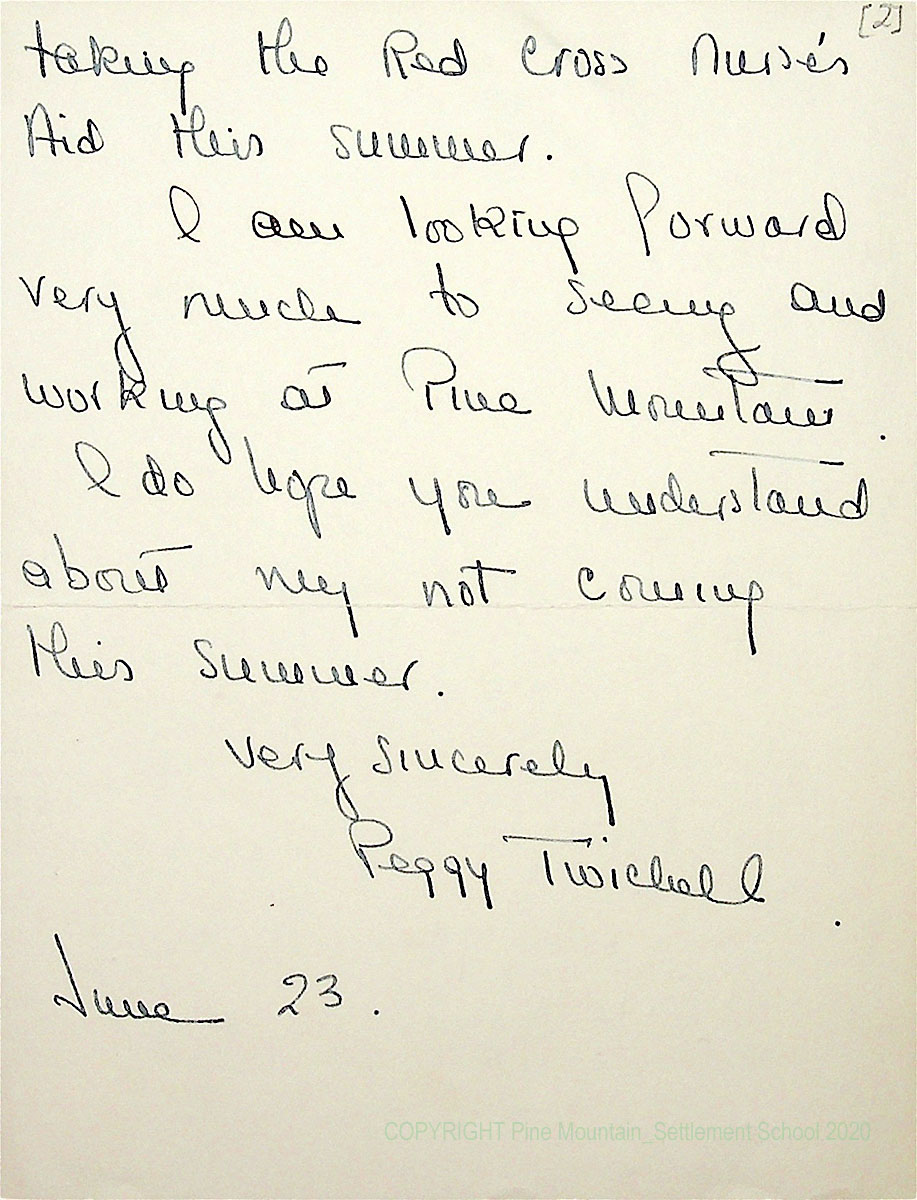 [2]
taking the Red Cross Nurse's
Aid this summer.
I am looking forward
very much to seeing and
working at Pine Mountain.
I do hope you understand
about my not coming
this summer.
Very sincerely
Peggy Twichell.
June 23.
COPYRIGHT Pine Mountain_Settlement School 2020